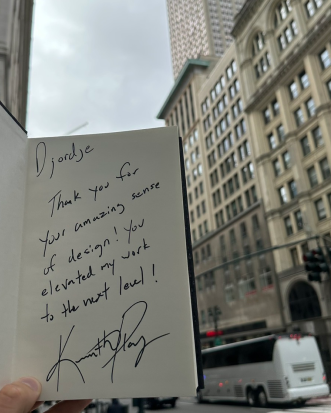 Djordje
Thank you for
your amazing sense
of design! You
elevated my work
to the next level!
Kenneth Play